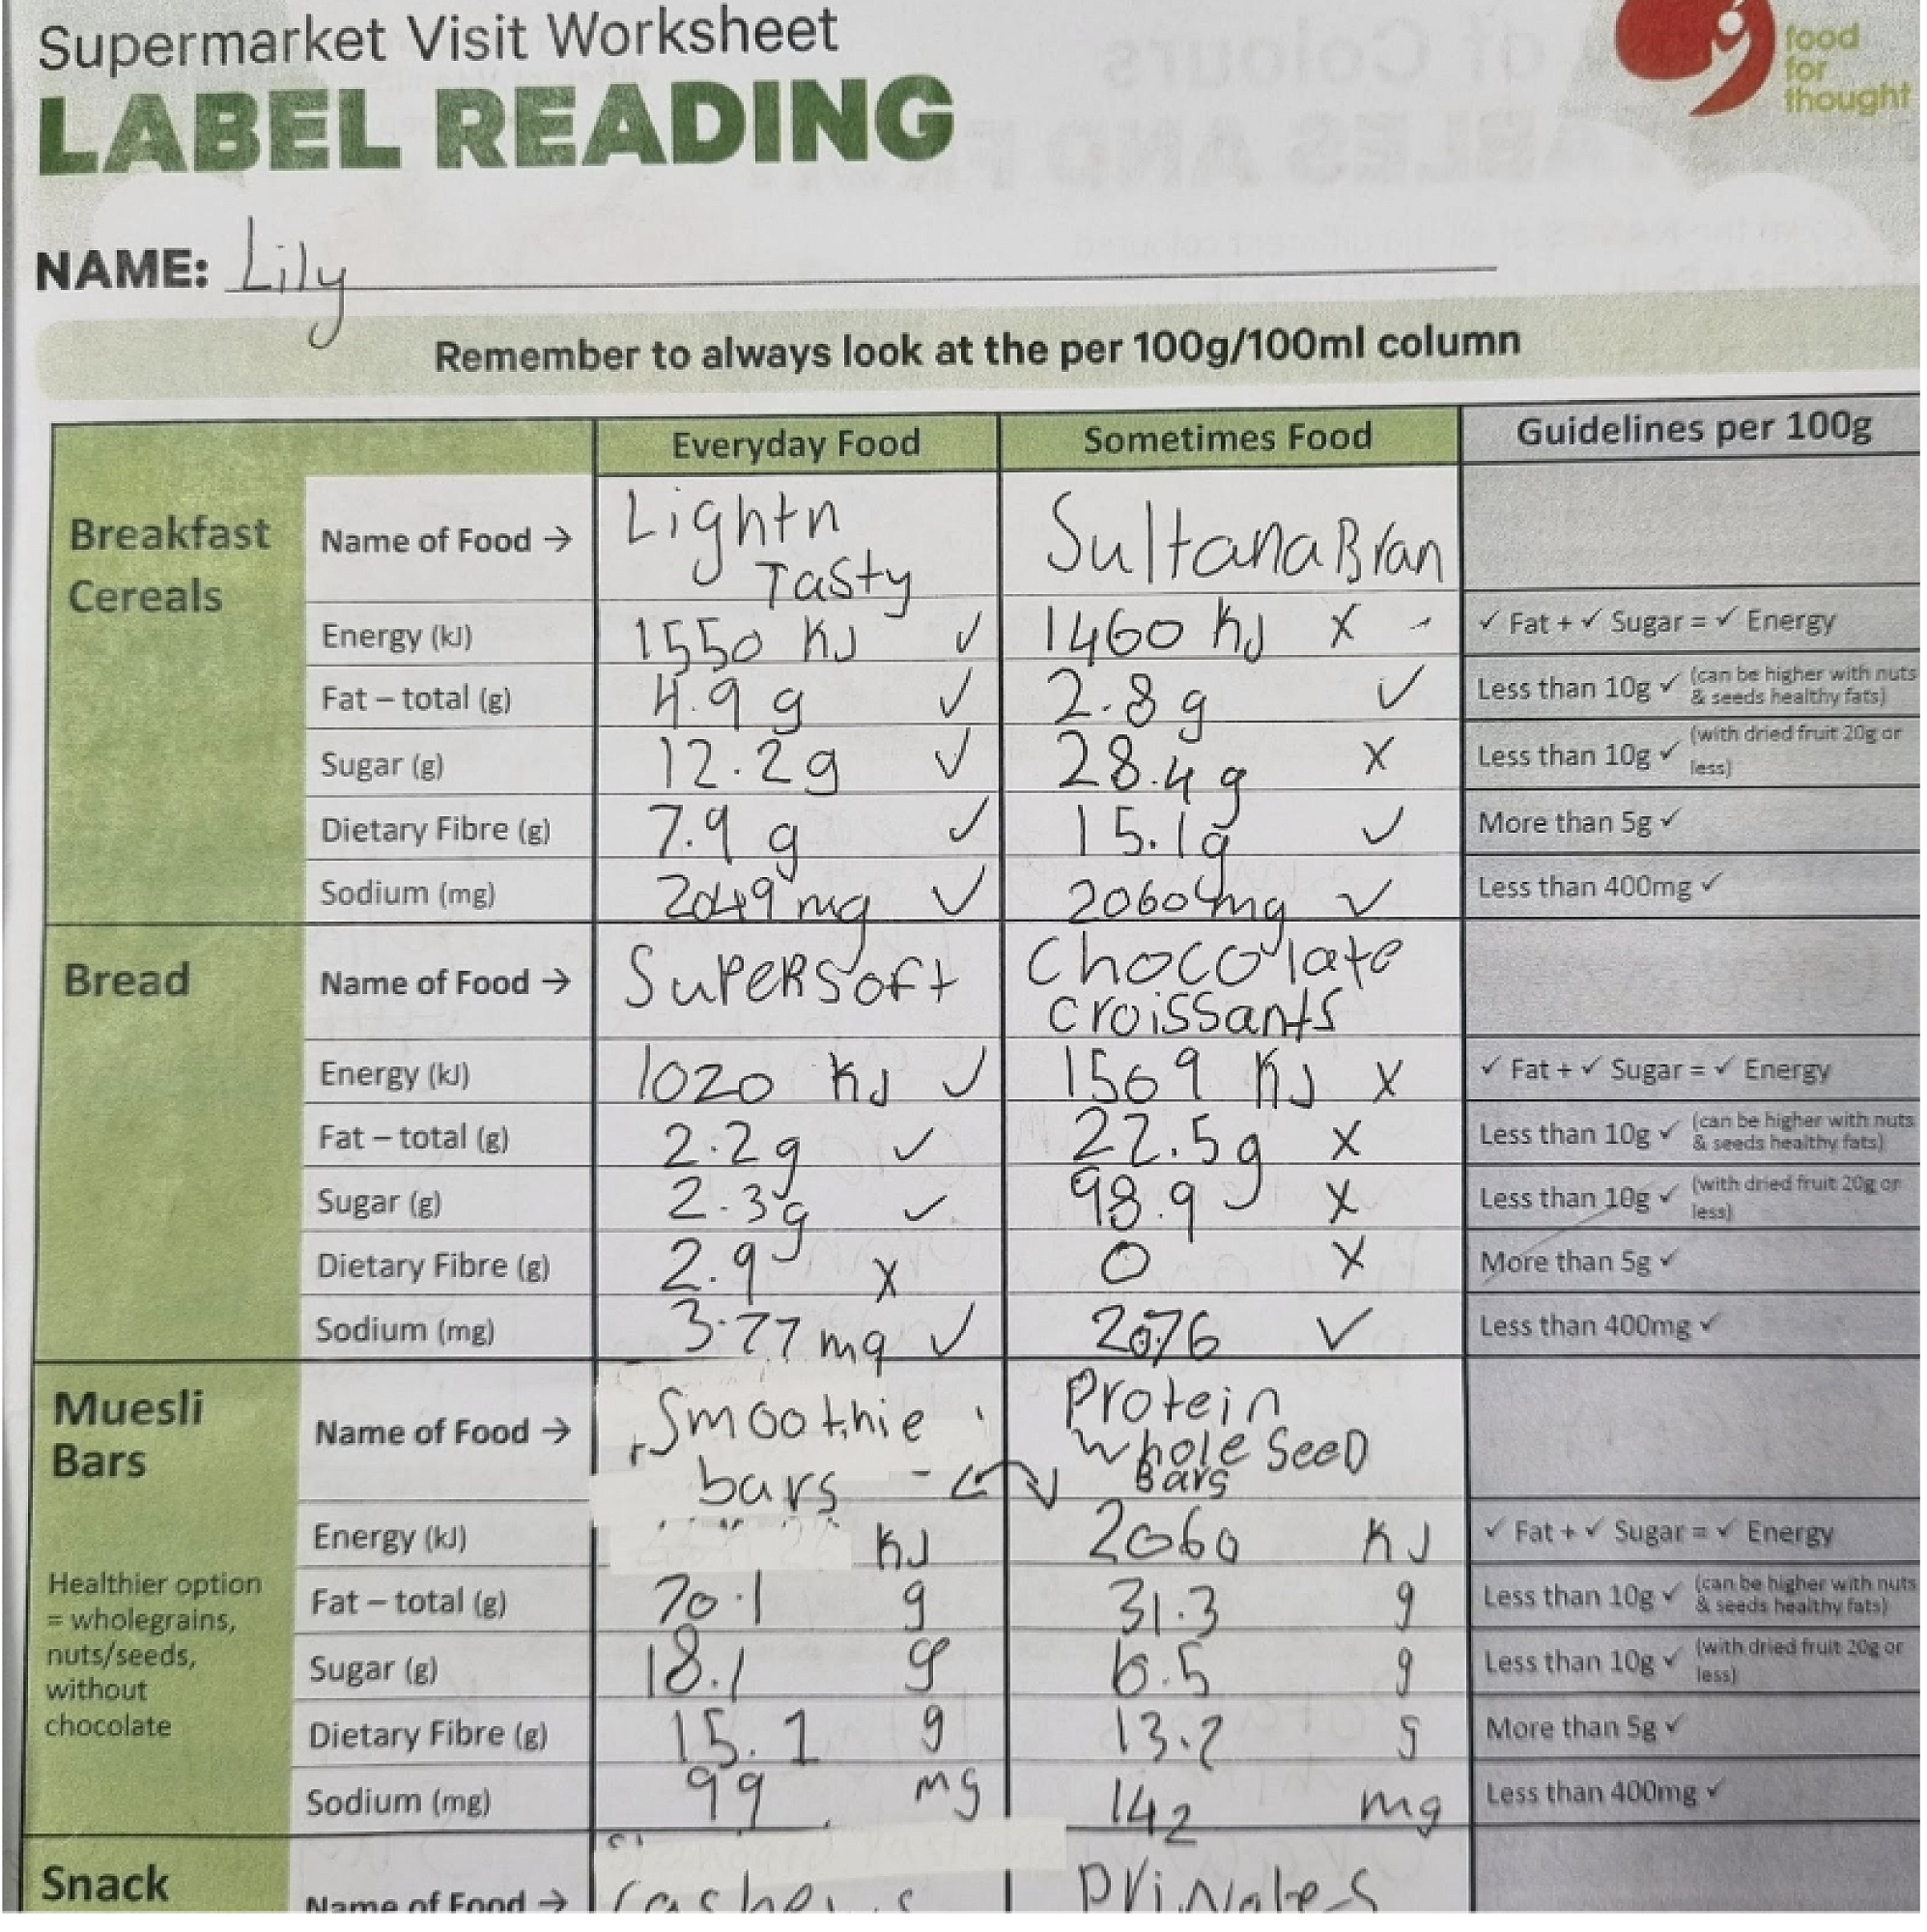 Supermarket Visit Worksheet
LABEL READING
food
for
thought
NAME: Lily
Remember to always look at the per 100g/100ml column
Everyday Food Sometimes Food Guidelines per 100g
Breakfast
Cereals
Name of Food → Lightn Tasty SultanaBran
Energy (kJ) 1550 KJ ✓ 1460 KJ X ✓ Fat + ✓ Sugar = ✓ Energy
Fat – total (g) 4.9 g ✓ 2.8 g ✓ Less than 10g ✓ (can be higher with nuts & seeds healthy fats)
Sugar (g) 12.2g ✓ 28.4g X Less than 10g ✓ (with dried fruit 20g or less)
Dietary Fibre (g) 7.9 g ✓ 15.1g ✓ More than 5g ✓
Sodium (mg) mg ✓ mg ✓ Less than 400mg ✓
Bread
Name of Food → SUPERSOFT Chocolate croissants
Energy (kJ) 1020 KJ ✓ 1569 KJ X ✓ Fat + ✓ Sugar = ✓ Energy
Fat – total (g) 2.2g ✓ 22.5g X Less than 10g ✓ (can be higher with nuts & seeds healthy fats)
Sugar (g) 2.3g ✓ 98.9 X Less than 10g ✓ (with dried fruit 20g or less)
Dietary Fibre (g) 2.9 X 0 X More than 5g ✓
Sodium (mg) 3.77 mg ✓ ✓ Less than 400mg ✓
Muesli
Bars
Name of Food → Smoothie bars Protein whole SeeD Bars
Energy (kJ) KJ 2060 KJ ✓ Fat + ✓ Sugar = ✓ Energy
Healthier option
= wholegrains,
nuts/seeds,
without
chocolate
Fat – total (g) g 31.3 g Less than 10g ✓ (can be higher with nuts & seeds healthy fats)
Sugar (g) 18.1 g 6.5 g Less than 10g ✓ (with dried fruit 20g or less)
Dietary Fibre (g) 15.1 g 13.2 g More than 5g ✓
Sodium (mg) 99 mg 142 mg Less than 400mg ✓
Snack
Name of Food →